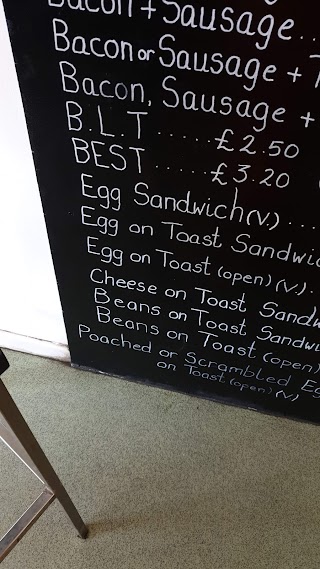 Bacon + Sausage...
Bacon or Sausage +
Bacon, Sausage +
B.L.T ...... £2.50
BEST ...... £3.20
Egg Sandwich (V.) ....
Egg on Toast
Egg on Toast (open) (V.) .
Cheese on Toast
Beans on Toast
Beans on Toast (open)
Poached or Scrambled
on Toast (open) (V)